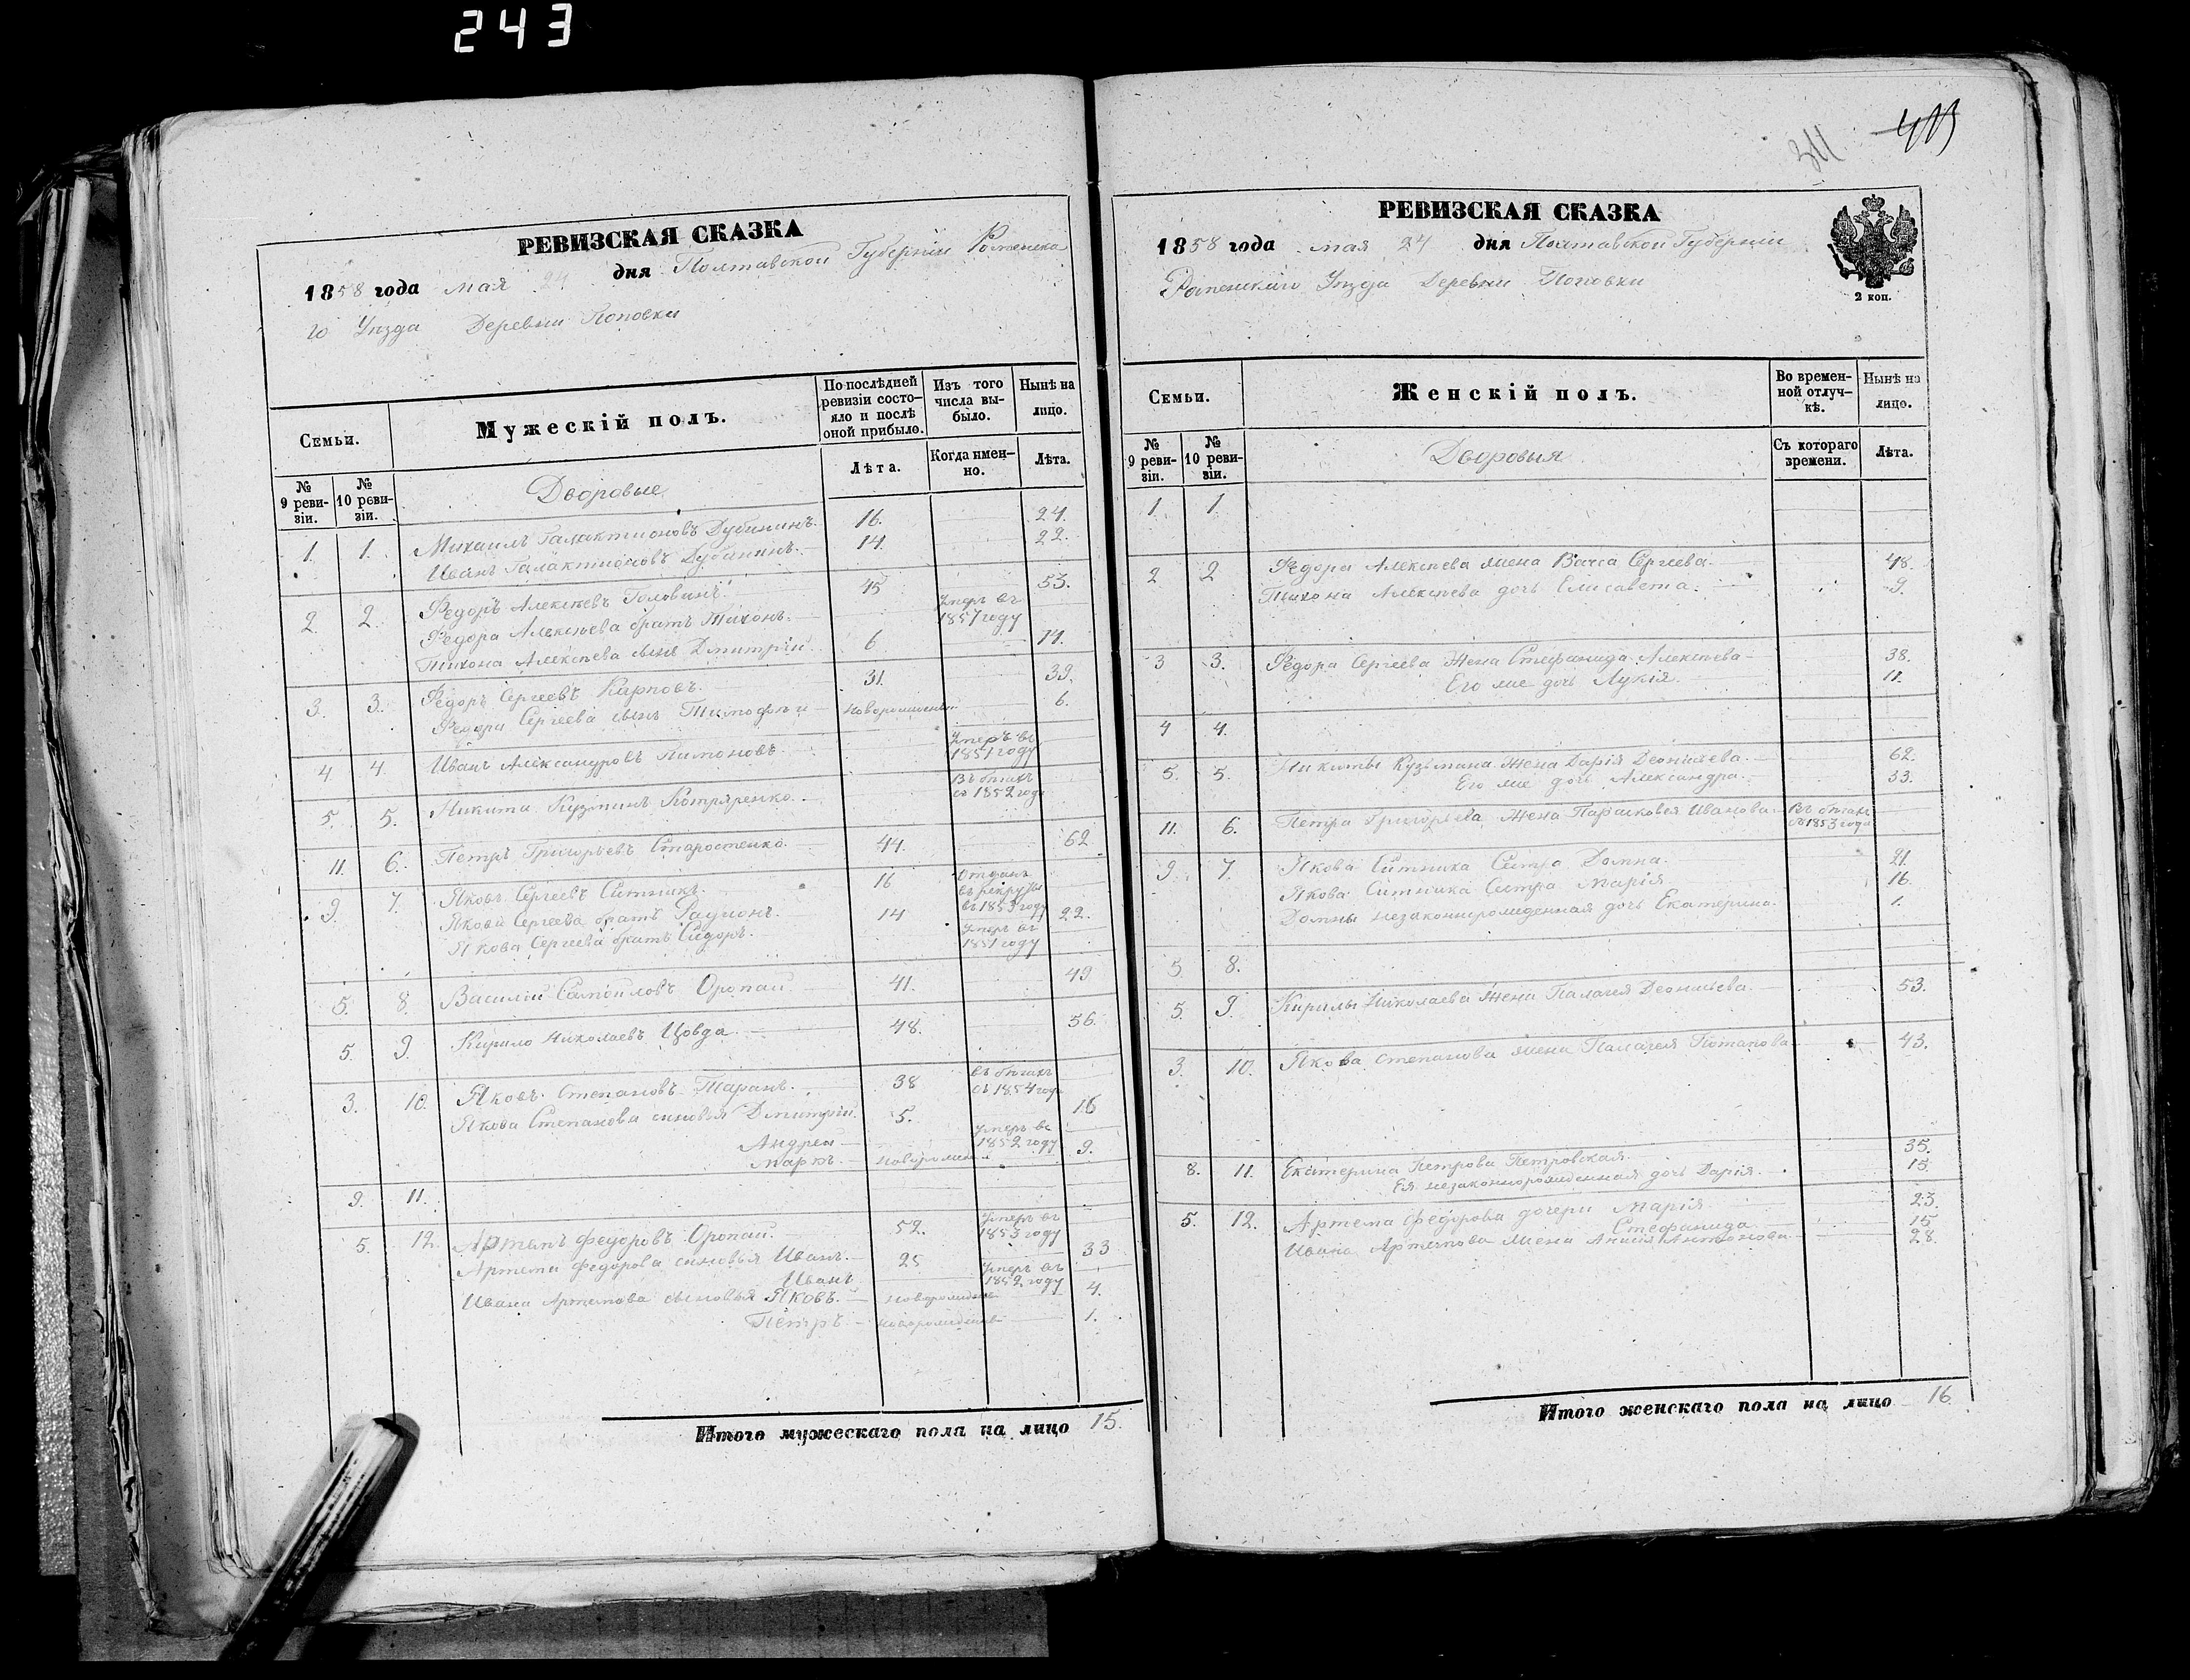 243
РЕВИЗСКАЯ СКАЗКА
1858 года мая 24 дня Полтавской Губерніи Роменска
го Уѣзда Деревни Поповки
Семьи.
Мужескій полъ.
По послѣдней ревизіи состо-
яло и послѣ оной прибыло.
Изъ того числа вы-
было.
Нынѣ на лицо.
№ 9 реви-
зіи.
№ 10 реви-
зіи.
Лѣта.
Когда имен-
но.
Лѣта.
Дворовые
1. 1. Михаилъ Галактионовъ Дубининъ. 16. 24.
Иванъ Галактионовъ Дубининъ. 14. 22.
2. 2. Федоръ Алексѣевъ Головинъ. 45 53.
Федора Алексѣева братъ Тихонъ. Умеръ въ 1857 году
Тихона Алексѣева сынъ Дмитрій. 6 14.
3. 3. Федоръ Сергеевъ Карповъ. 31. 39.
Федора Сергеева сынъ Тимофѣй новорожденъ 6.
4 4. Иванъ Александровъ Умеръ въ 1851 году
5. 5. Никита Кузминъ Котляренко. Въ бѣгахъ съ 1852 года
11. 6. Петръ Григорьевъ Старостенко. 44. 62
9. 7. Яковъ Сергеевъ Ситникъ. 16 Отданъ въ рекруты въ 1853 году
Якова Сергеева братъ Радионъ. 14 22.
Якова Сергеева братъ Сидоръ. Умеръ въ 1851 году
5. 8. Василій Самойловъ Оропай 41. 49
5. 9. Кирило Николаевъ Цовда. 48. 56.
3. 10. Яковъ Степановъ Таранъ. 38 въ бѣгахъ съ 1854 года
Якова Степанова сыновья Дмитрій. 5. 16
Андрей Умеръ въ 1852 году
Маркъ. новорожденъ 9.
9. 11.
5. 12. Артемъ Федоровъ Оропай. 52. Умеръ въ 1853 году
Артема Федорова сыновья Иванъ. 25 33
Иванъ Умеръ въ 1852 году
Ивана Артемова сыновья Яковъ. новорожденъ 4.
Петръ. новорожденъ 1.
Итого мужескаго пола на лицо 15.
311
РЕВИЗСКАЯ СКАЗКА
1858 года мая 24 дня Полтавской Губерніи
Роменскаго Уѣзда Деревни Поповки
2 коп.
Семьи.
Женскій полъ.
Во времен-
ной отлуч-
кѣ.
Нынѣ на лицо.
№ 9 реви-
зіи.
№ 10 реви-
зіи.
Съ котораго времени.
Лѣта.
Дворовыя
1. 1.
2 2 Федора Алексѣева жена Васса Сергеева. 48.
Тихона Алексѣева дочь Елисавета. 9.
3 3. Федора Сергеева жена Стефанида Алексѣева 38.
Его же дочь Лукія. 11.
4 4.
5. 5. Никиты Кузьмина жена Дарія Деонисіева. 62.
Его же дочь Александра. 33.
11. 6. Петра Григорьева жена Парасковея Иванова Въ бѣгахъ съ 1853 года
9. 7. Якова Ситника Сестра Домна. 21.
Якова Ситника Сестра Марія 16.
Домны незаконнорожденная дочь Екатерина. 1.
5 8.
5. 9. Кирилы Николаева жена Палагея Деонисіева. 53.
3. 10. Якова Степанова жена Палагея Потапова 43.
8. 11. Екатерина Петрова Петровская. 35.
Ея незаконнорожденная дочь Дарія. 15.
5. 12. Артема Федорова дочери Марія 23.
Стефанида 15
Ивана Артемова жена Анисія Антонова 28.
Итого женскаго пола на лицо 16